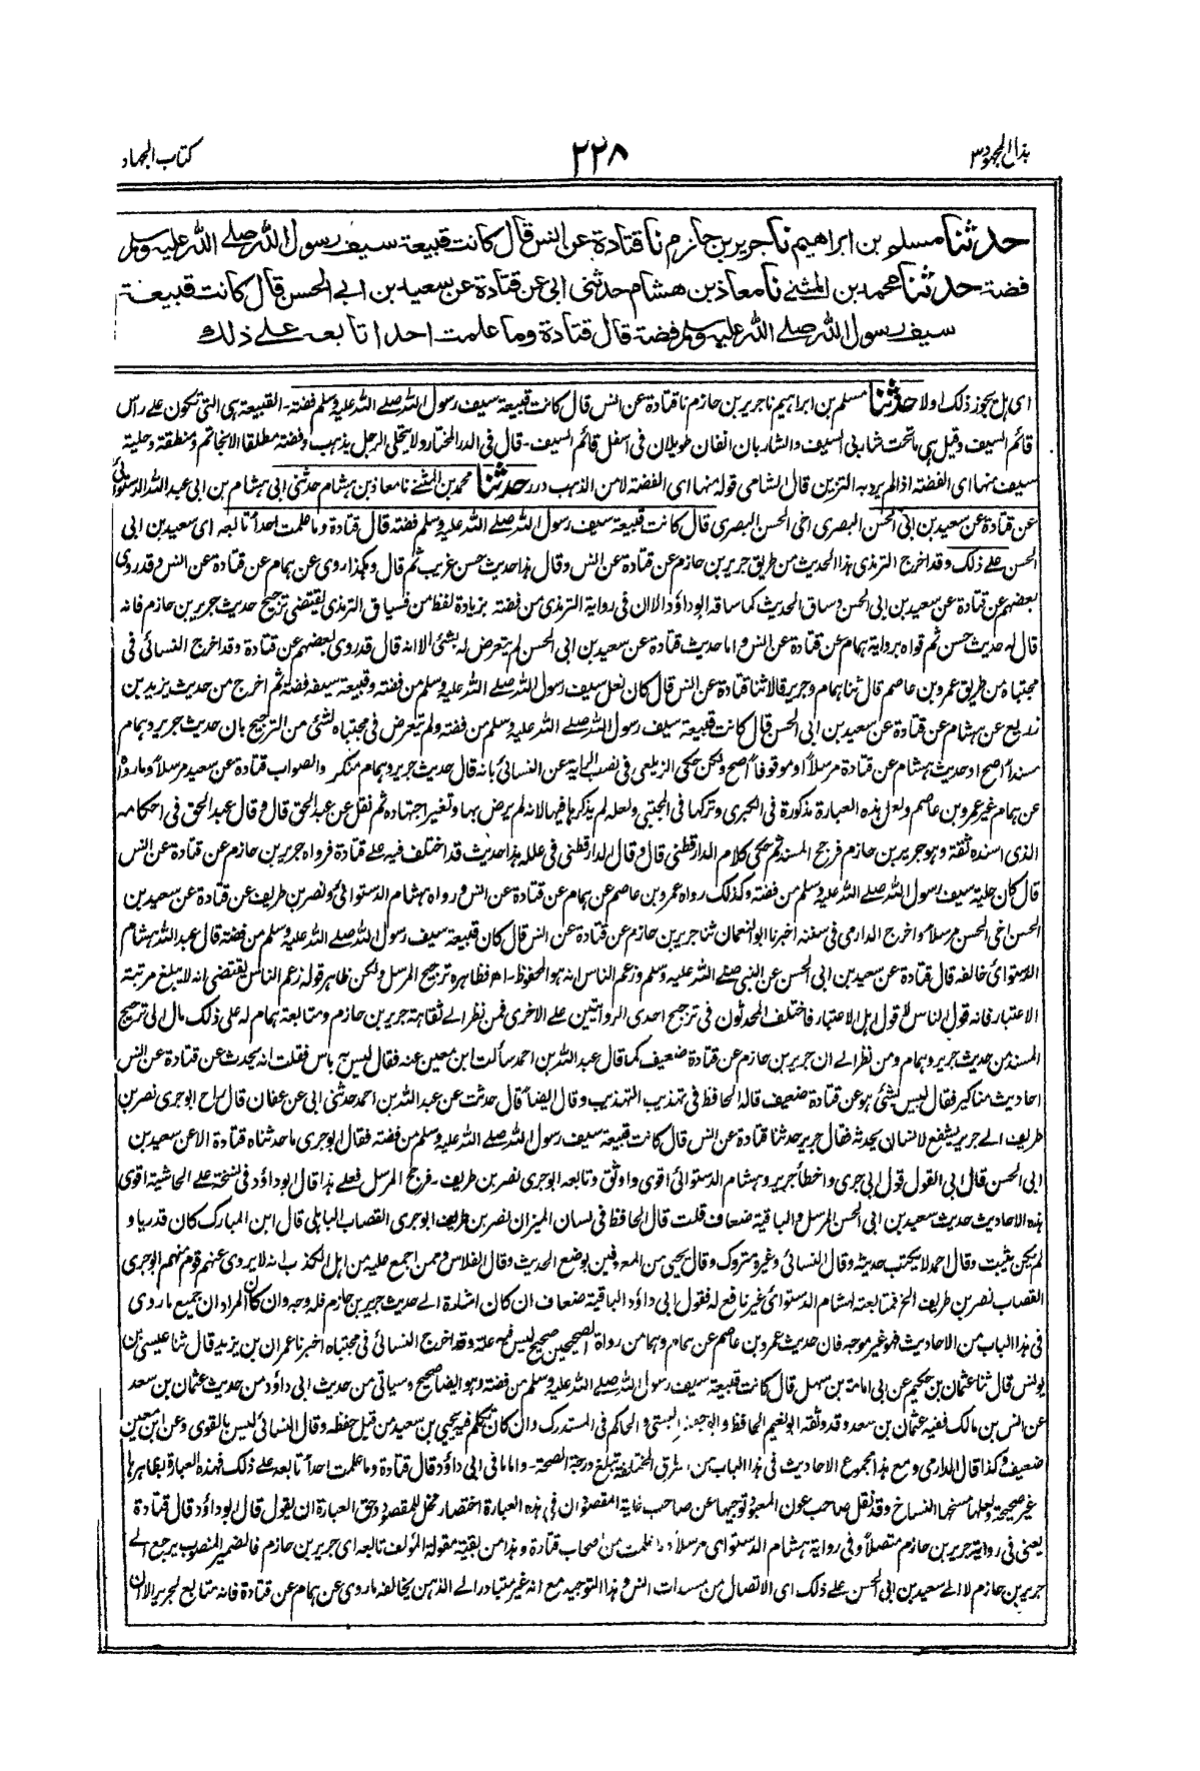 بذل المجهود ٣
٢٢٨
كتاب الجهاد
حدثنا مسلم بن ابراهيم نا جرير بن حازم نا قتادة عن انس قال كانت قبيعة سيف رسول الله صلى الله عليه وسلم
فضة حدثنا محمد بن المثنى نا معاذ بن هشام حدثنى ابى عن قتادة عن سعيد بن ابى الحسن قال كانت قبيعة
سيف رسول الله صلى الله عليه وسلم فضة قال قتادة وما علمت احدا تابعه على ذلك
اى هل يجوز ذلك اولا حدثنا مسلم بن ابراهيم نا جرير بن حازم نا قتادة عن انس قال كانت قبيعة سيف رسول الله صلى الله عليه وسلم فضته - القبيعة هى التى تكون على رأس
قائم السيف وقيل هى ما تحت شاربى السيف والشاربان انفان طويلان فى اسفل قائم السيف - قال فى الدر المختار ولا يتحلى الرجل بذهب وفضة مطلقا الا بخاتم ومنطقة وحلية
سيف منها اى الفضة اذا لم يرد به التزين قال الشامى قوله منها اى الفضة لا من الذهب درر حدثنا محمد بن المثنى نا معاذ بن هشام حدثنى ابى هشام بن ابى عبد الله الدستوائى
عن قتادة عن سعيد بن ابى الحسن البصرى اخى الحسن البصرى قال كانت قبيعة سيف رسول الله صلى الله عليه وسلم فضته قال قتادة وما علمت احداً تابعه اى سعيد بن ابى
الحسن على ذلك وقد اخرج الترمذى هذا الحديث من طريق جرير بن حازم عن قتادة عن انس وقال هذا حديث حسن غريب ثم قال وهكذا روى عن همام عن قتادة عن انس وقد روى
بعضهم عن قتادة عن سعيد بن ابى الحسن وساق الحديث كما ساقه ابوداؤد الا ان فى رواية الترمذى من فضته بزيادة لفظ من فسياق الترمذى يقتضى ترجيح حديث جرير بن حازم فانه
قال له حديث حسن ثم قواه برواية همام عن قتادة عن انس واما حديث قتادة عن سعيد بن ابى الحسن لم يتعرض له بشئ الا انه قال قد روى بعضهم عن قتادة وقد اخرج النسائى فى
مجتباه من طريق عمرو بن عاصم قال ثنا همام وجرير قالا ثنا قتادة عن انس قال كان نعل سيف رسول الله صلى الله عليه وسلم من فضته وقبيعة سيفه فضته ثم اخرج من حديث يزيد بن
زريع عن هشام عن قتادة عن سعيد بن ابى الحسن قال كانت قبيعة سيف رسول الله صلى الله عليه وسلم من فضته ولم يتعرض فى مجتباه لشئى من الترجيح بان حديث جرير وهمام
مسنداً اصح او حديث هشام عن قتادة مرسلاً او موقوفاً اصح ولكن حكى الزيلعى فى نصب الراية عن النسائى بانه قال حديث جرير وهمام منكر والصواب قتادة عن سعيد مرسلاً وما رواه
عن همام غير عمرو بن عاصم ولعل هذه العبارة مذكورة فى الكبرى وتركها فى المجتبى ولعله لم يذكرها فيها لانه لم يرض بها وتغير اجتهاده ثم نقل عن عبد الحق قال وقال عبد الحق فى احكامه
الذى اسنده ثقة وهو جرير بن حازم فرجح المسند ثم حكى كلام الدارقطنى قال وقال الدارقطنى فى علله هذا حديث قد اختلف فيه على قتادة فرواه جرير بن حازم عن قتادة عن انس
قال كان حلية سيف رسول الله صلى الله عليه وسلم من فضته وكذلك رواه عمرو بن عاصم عن همام عن قتادة عن انس ورواه هشام الدستوائى ونصر بن طريف عن قتادة عن سعيد بن
الحسن اخى الحسن مرسلاً واخرج الدارمى فى سننه اخبرنا ابو النعمان ثنا جرير بن حازم عن قتادة عن انس قال كان قبيعة سيف رسول الله صلى الله عليه وسلم من فضته قال عبد الله هشام
الدستوائى خالفه قال قتادة عن سعيد بن ابى الحسن عن النبى صلى الله عليه وسلم وزعم الناس انه هو المحفوظ - اھ فظاهره ترجيح المرسل ولكن ظاهر قوله زعم الناس يقتضى انه لا يبلغ مرتبته
الاعتبار فانه قول الناس لا قول اهل الاعتبار فاختلف المحدثون فى ترجيح احدى الروايتين على الاخرى فمن نظر الى ثقاهة جرير بن حازم ومتابعة همام له على ذلك مال الى ترجيح
المسند من حديث جرير وهمام ومن نظر الى ان جرير بن حازم عن قتادة ضعيف كما قال عبد الله بن احمد سألت ابن معين عنه فقال ليس به باس فقلت انه يحدث عن قتادة عن انس
احاديث مناكير فقال ليس بشئ هو عن قتادة ضعيف قاله الحافظ فى تهذيب التهذيب وقال ايضاً قال حدثت عن عبد الله بن احمد حدثنى ابى عن عفان قال راح ابو جرى نصر بن
طريف الى جرير يشفع لانسان يحدثه فقال جرير حدثنا قتادة عن انس قال كانت قبيعة سيف رسول الله صلى الله عليه وسلم من فضته فقال ابو جرى ما حدثناه قتادة الا عن سعيد بن
ابى الحسن قال ابى القول قول ابى جرى واخطأ جرير وهشام الدستوائى اقوى واوثق وتابعه ابو جرى نصر بن طريف - فرجح المرسل فعلى هذا قال ابوداؤد فى نسخة على الحاشية اقوى
هذه الاحاديث حديث سعيد بن ابى الحسن المرسل والباقية ضعاف قلت قال الحافظ فى لسان الميزان نصر بن طريف ابو جرى القصاب الباهلى قال ابن المبارك كان قدريا و
لم يكن يثبت وقال احمد لا يكتب حديثه وقال النسائى وغيره متروك وقال يحيى من المعروفين بوضع الحديث وقال الفلاس وممن اجمع عليه من اهل الكذب انه لا يروى عنهم قوم منهم ابو جرى
القصاب نصر بن طريف الخ فمتابعته لهشام الدستوائى غير نافع له فقول ابى داؤد الباقية ضعاف ان كان اشارة الى حديث جرير بن حازم فله وجه وان كان المراد ان جميع ما روى
فى هذا الباب من الاحاديث فهو غير موجه فان حديث عمرو بن عاصم عن همام وهما من رواة الصحيحين صحيح ليس فيه علة وقد اخرج النسائى فى مجتباه اخبرنا عمران بن يزيد قال ثنا عيسى بن
يونس قال ثنا عثمان بن حكيم عن ابى امامة بن سهل قال كانت قبيعة سيف رسول الله صلى الله عليه وسلم من فضته وهو ايضا صحيح وسياتى من حديث ابى داؤد من حديث عثمان بن سعد
عن انس بن مالك ففيه عثمان بن سعد وقد وثقه ابو نعيم الحافظ وابو جعفر البستى والحاكم فى المستدرك وان كان تكلم فيه يحيى بن سعيد من قبل حفظه وقال النسائى ليس بالقوى وعن ابن معين
ضعيف وكذا قال الدارمى ومع هذا مجموع الاحاديث فى هذا الباب من الطرق المختلفة تبلغ درجة الصحة - واما ما فى ابى داؤد قال قتادة وما علمت احداً تابعه على ذلك فهذه العبارة بظاهرها
غير صحيحة ولعلها مسخها النساخ وقد نقل صاحب عون المعبود توجيها عن صاحب غاية المقصود ان فى هذه العبارة اختصار مخل للمقصود وحق العبارة ان يقول قال ابوداؤد قال قتادة
يعنى فى رواية جرير بن حازم متصلاً وفى رواية هشام الدستوائى مرسلاً وما علمت من اصحاب قتادة وهذا من بقية مقولة المؤلف تابعه اى جرير بن حازم فالضمير المنصوب يرجع الى
جرير بن حازم لا الى سعيد بن ابى الحسن على ذلك اى الاتصال من مسندات انس وهذا التوجيه مع انه غير متبادر الى الذهن يخالفه ما روى عن همام عن قتادة فانه متابع لجرير الا ان